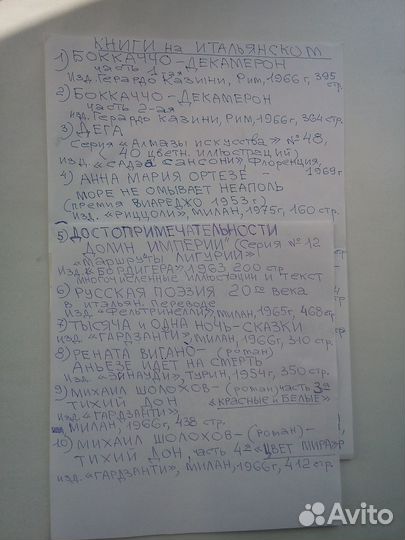 КНИГИ на ИТАЛЬЯНСКОМ
1) БОККАЧЧО - ДЕКАМЕРОН
часть 1-ая
изд. Герардо Казини, Рим, 1966 г, 395 стр.
2) БОККАЧЧО - ДЕКАМЕРОН
часть 2-ая
изд. Герардо Казини, Рим, 1966 г, 334 стр.
3) ДЕГА
Серия «Алмазы искусства» № 48,
(40 цветн. иллюстраций)
изд. «Садэа Сансони», Флоренция,
1969 г
4) АННА МАРИЯ ОРТЕЗЕ -
МОРЕ НЕ ОМЫВАЕТ НЕАПОЛЬ
(премия ВИАРЕДЖО 1953 г)
изд. «РИЦЦОЛИ», МИЛАН, 1975 г, 160 стр.
5) ДОСТОПРИМЕЧАТЕЛЬНОСТИ
ДОЛИН ИМПЕРИИ" (Серия № 12
"Маршруты ЛИГУРИИ»)
изд. «БОРДИГЕРА» 1963 200 стр
многочисленные иллюстрации и текст
6) РУССКАЯ ПОЭЗИЯ 20го века
в итальян. переводе
изд. «Фельтринелли», милан, 1965 г, 468 стр.
7) ТЫСЯЧА и ОДНА НОЧЬ - СКАЗКИ
изд. «ГАРДЗАНТИ», Милан, 1966 г, 310 стр.
8) РЕНАТА ВИГАНО - (роман)
АНЬЕЗЕ ИДЕТ НА СМЕРТЬ
изд. «ЭЙНАУДИ», ТУРИН, 1954 г, 350 стр.
9) МИХАИЛ ШОЛОХОВ - (роман) часть 3я
ТИХИЙ ДОН «КРАСНЫЕ и БЕЛЫЕ»
изд. «ГАРДЗАНТИ»,
МИЛАН, 1966 г, 438 стр.
10) МИХАИЛ ШОЛОХОВ - (роман) -
ТИХИЙ ДОН, часть 4я «ЦВЕТ МИРА»
изд. «ГАРДЗАНТИ», МИЛАН, 1966 г, 412 стр.
Avito